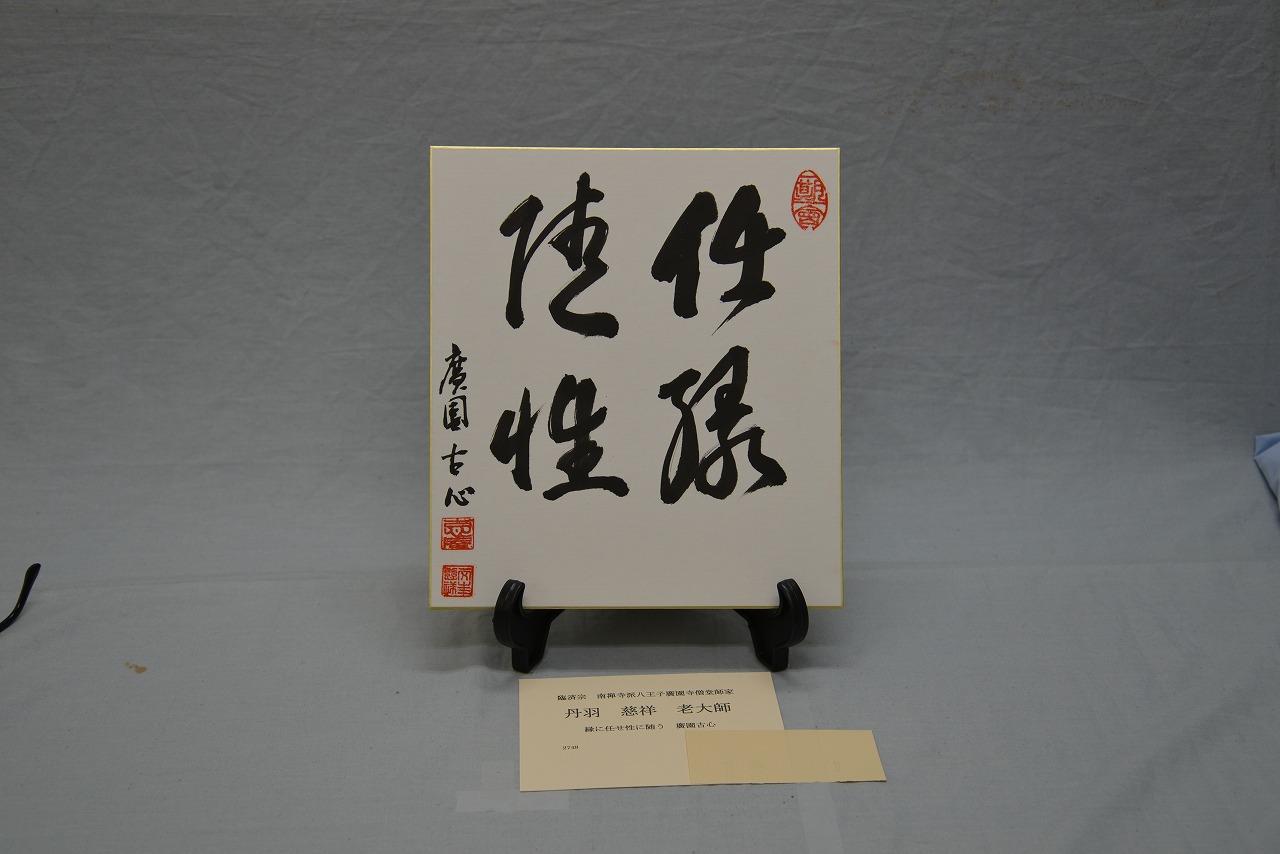 任縁
随性
廣園古心
臨済宗 南禅寺派八王子廣園寺僧堂師家
丹羽 慈祥 老大師
縁に任せ性に随う 廣園古心
2749